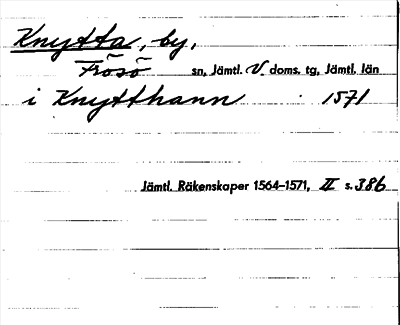 Knytta, by,
Frösö sn, Jämtl. V. doms. tg, Jämtl. län
i Knytthann 1571
Jämtl. Räkenskaper 1564–1571, II s. 386